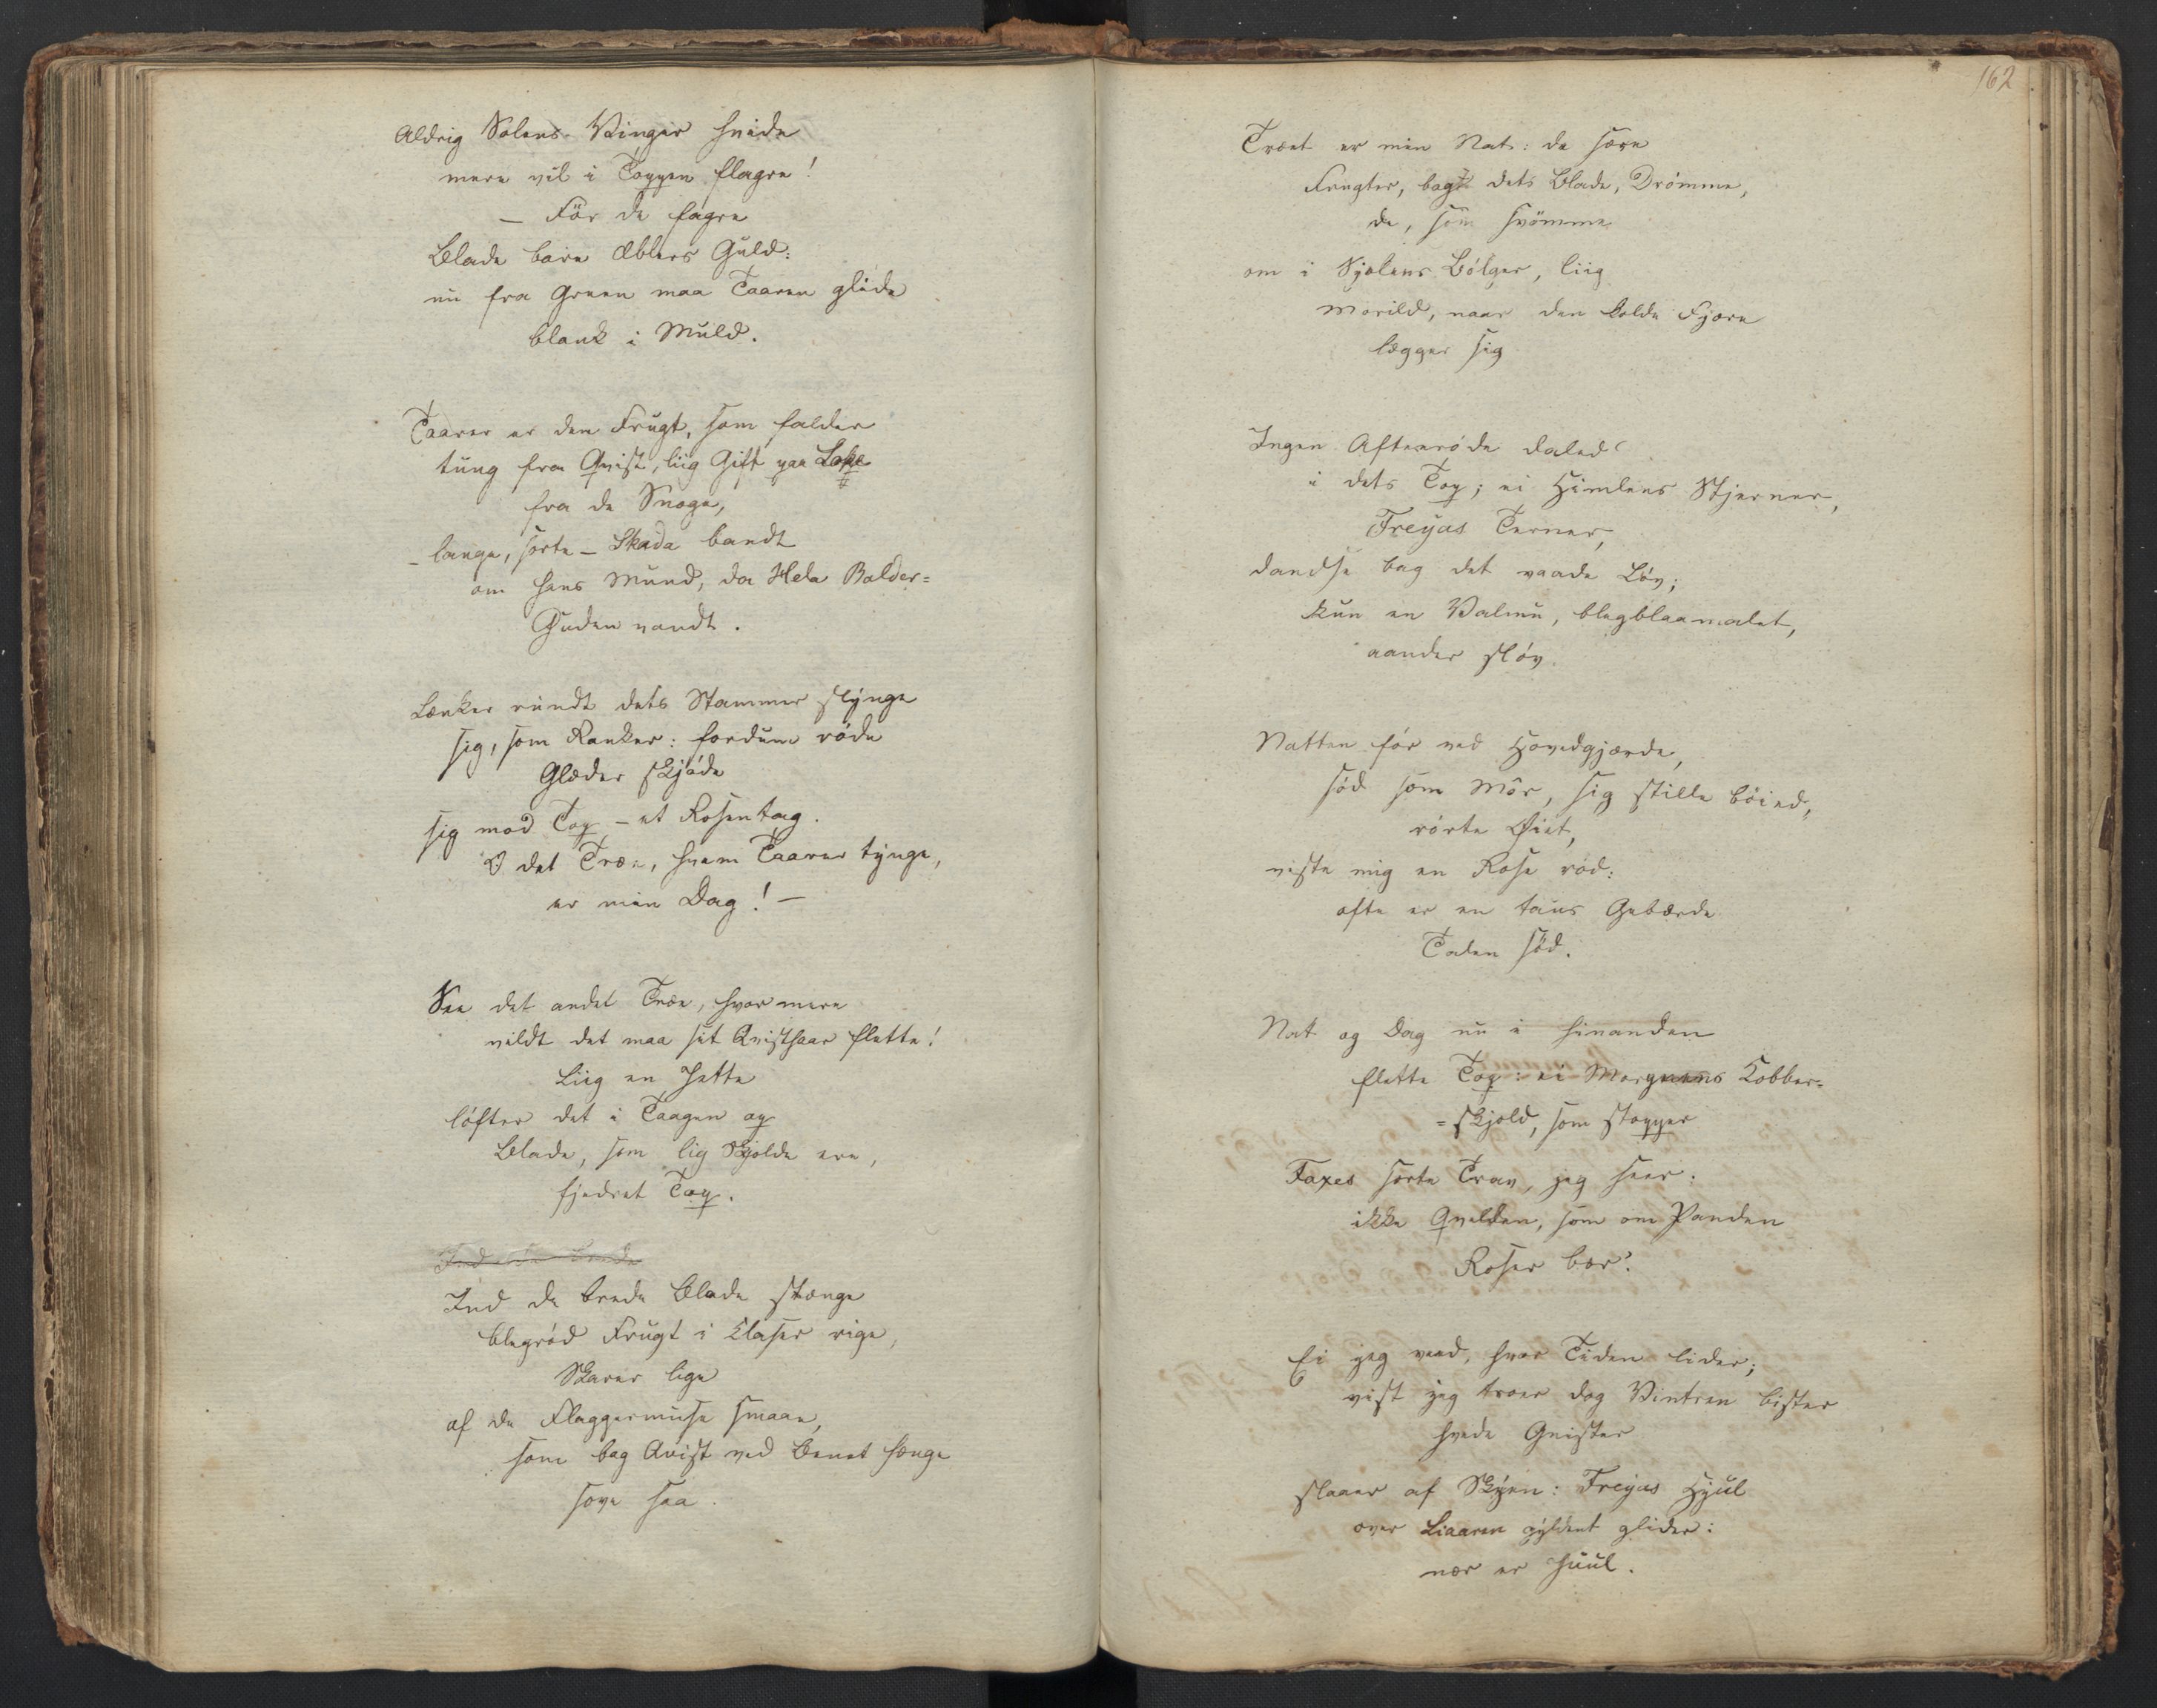 Aldrig Solens Vinger hvide
mere vil i Toppen flagre!
– Før de fagre
Blade bare Æblers Guld:
nu fra Green maa Taaren glide
blank i Muld.
Taarer er den Frugt, som falder
tung fra Qvist, liig Gift paa Loke
fra de Snoge,
– lange, sorte – Skada bandt
om hans Mund, da Hela Balder-
Guden vandt.
Lænker rundt dets Stammer slynge
sig, som Ranker: fordum røde
Glæder skjøde
sig mod Top – et Rosentag.
O det Træe, hvem Taarer tynge,
er min Dag! –
See det andet Træe, hvor mere
vildt det maa sit Qvisthaar flette!
Liig en Jette
løfter det i Taagen op
Blade, som lig Skjolde ere,
fjedret Top.
Ind de brede
Ind de brede Blade stænge
blegrød Frugt i Klaser rige,
Skarer lige
af de Flaggermuse smaae,
som bag Qvist ved Benet hænge
sove saa.
162
Træet er min Nat: de sære
Frugter, bag dets Blade, Drømme,
de, som svømme
om i Sjelens Bølger, liig
Morild, naar den kolde Fjære
lægger sig
Ingen Aftenrøde daled'
i dets Top; ei Himlens Stjerner,
Freyas Terner,
dandse bag det vaade Løv;
kun en Valmu, blegblaamalet,
aander sløv.
Natten før ved Hovedgjærde,
sød som Mør, sig stille bøied,
rørte Øiet,
viste mig en Rose rød:
ofte er en taus Gebærde
Talen sød.
Nat og Dag nu i hinanden
flette Top: ei Morgnens Kobber-
=skjold, som stopper
Faxes sorte Trav, jeg seer:
ikke Qvelden, som om Panden
Roser bær'.
Ei jeg veed, hvor Tiden lider;
vist jeg troer dog Vintren bister
hvide Gnister
slaaer af Skyen: Freyas Hjul
over Liaaren gyldent glider:
nær er Juul.